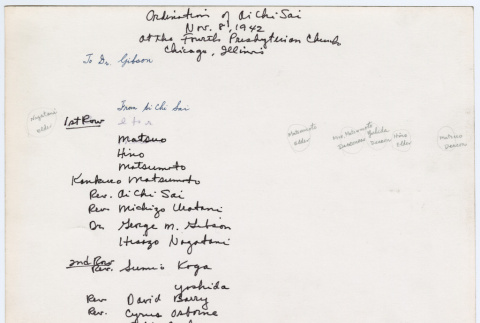 Ordination of Ai Chi Sai
Nov. 8, 1942
at the Fourth Presbyterian Church
Chicago, Illinois
To Dr. Gibson
From Ai Chi Sai
1st Row
l to r
Nagatani
elder
Matsumoto
elder
Mrs. Matsumoto
Deaconess
Yoshida
Deacon
Hino
Elder
Matsuo
Deacon
Matsuo
Hino
Matsumoto
Matsumoto
Rev. Ai Chi Sai
Rev. Michizo
Dr. George M. Gibson
Nagatani
2nd Row
Rev. Sumio Koga
Yoshida
Rev David Barry
Rev. Cyrus Osborne